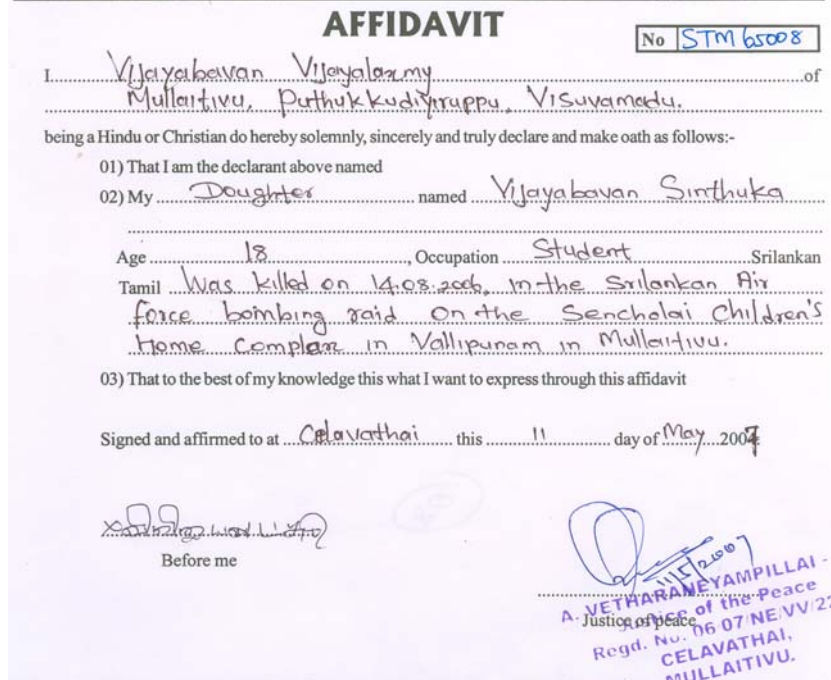 AFFIDAVIT
No STM 65008
I Vijayabavan Vijayalaxmy of
Mullaitivu, Puthukkudiyiruppu, Visuvamadu.
being a Hindu or Christian do hereby solemnly, sincerely and truly declare and make oath as follows:-
01) That I am the declarant above named
02) My Doughter named Vijayabavan Sinthuka
Age 18, Occupation Student Srilankan
Tamil Was killed on 14.08.2006, in the Srilankan Air
force bombing raid on the Sencholai Children's
Home Complax in Vallipunam in Mullaitivu.
03) That to the best of my knowledge this what I want to express through this affidavit
Signed and affirmed to at Celavathai this 11 day of May 2007
Before me
11/5/2007
Justice of peace
A. VETHARANEYAMPILLAI -
Justice of the Peace
Regd. No. 06 07/NE/VV/22
CELAVATHAI,
MULLAITIVU.